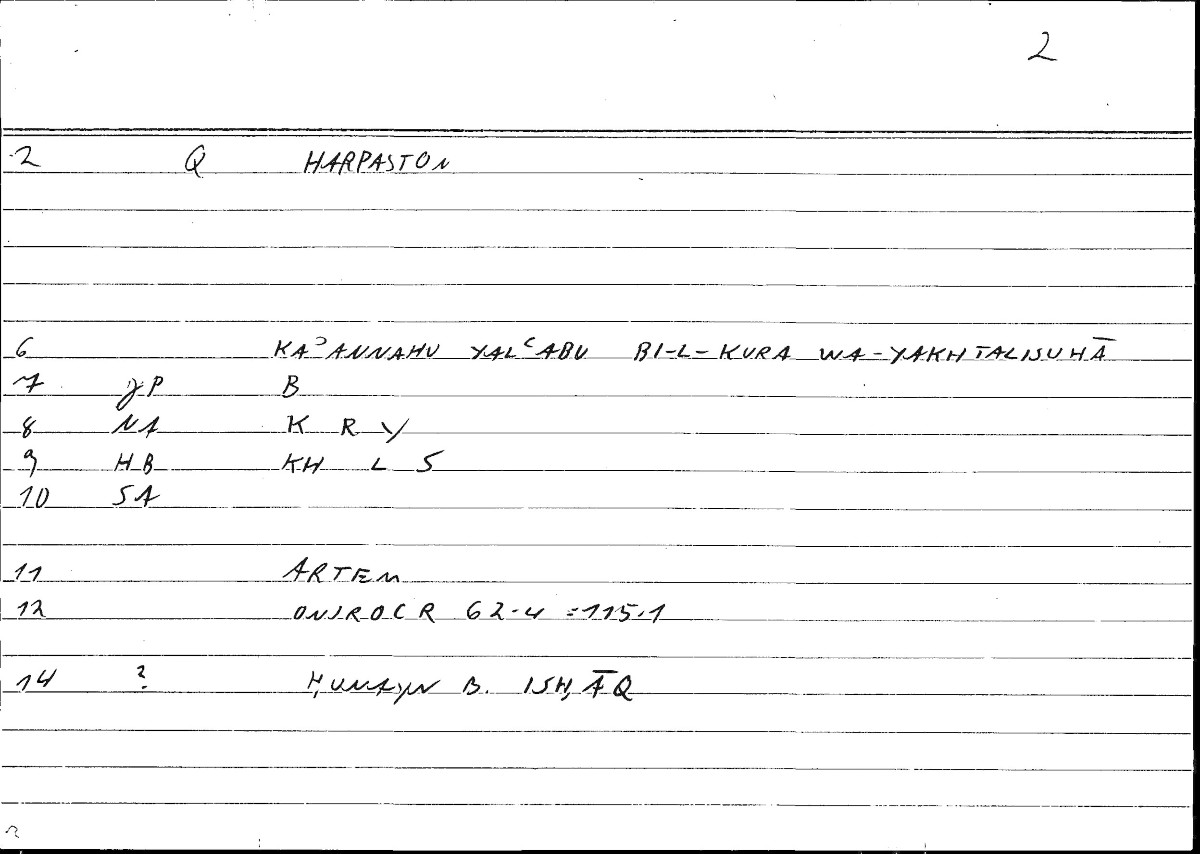 2
2 Q HARPASTON
6 KAʾANNAHU YALʿABU BI-L-KURA WA-YAKHTALISUHĀ
7 JP B
8 NA K R Y
9 HB KH L S
10 SA
11 ARTEM
12 ONIROCR 62-4 =115.1
14 ? ḤUNAYN B. ISḤĀQ